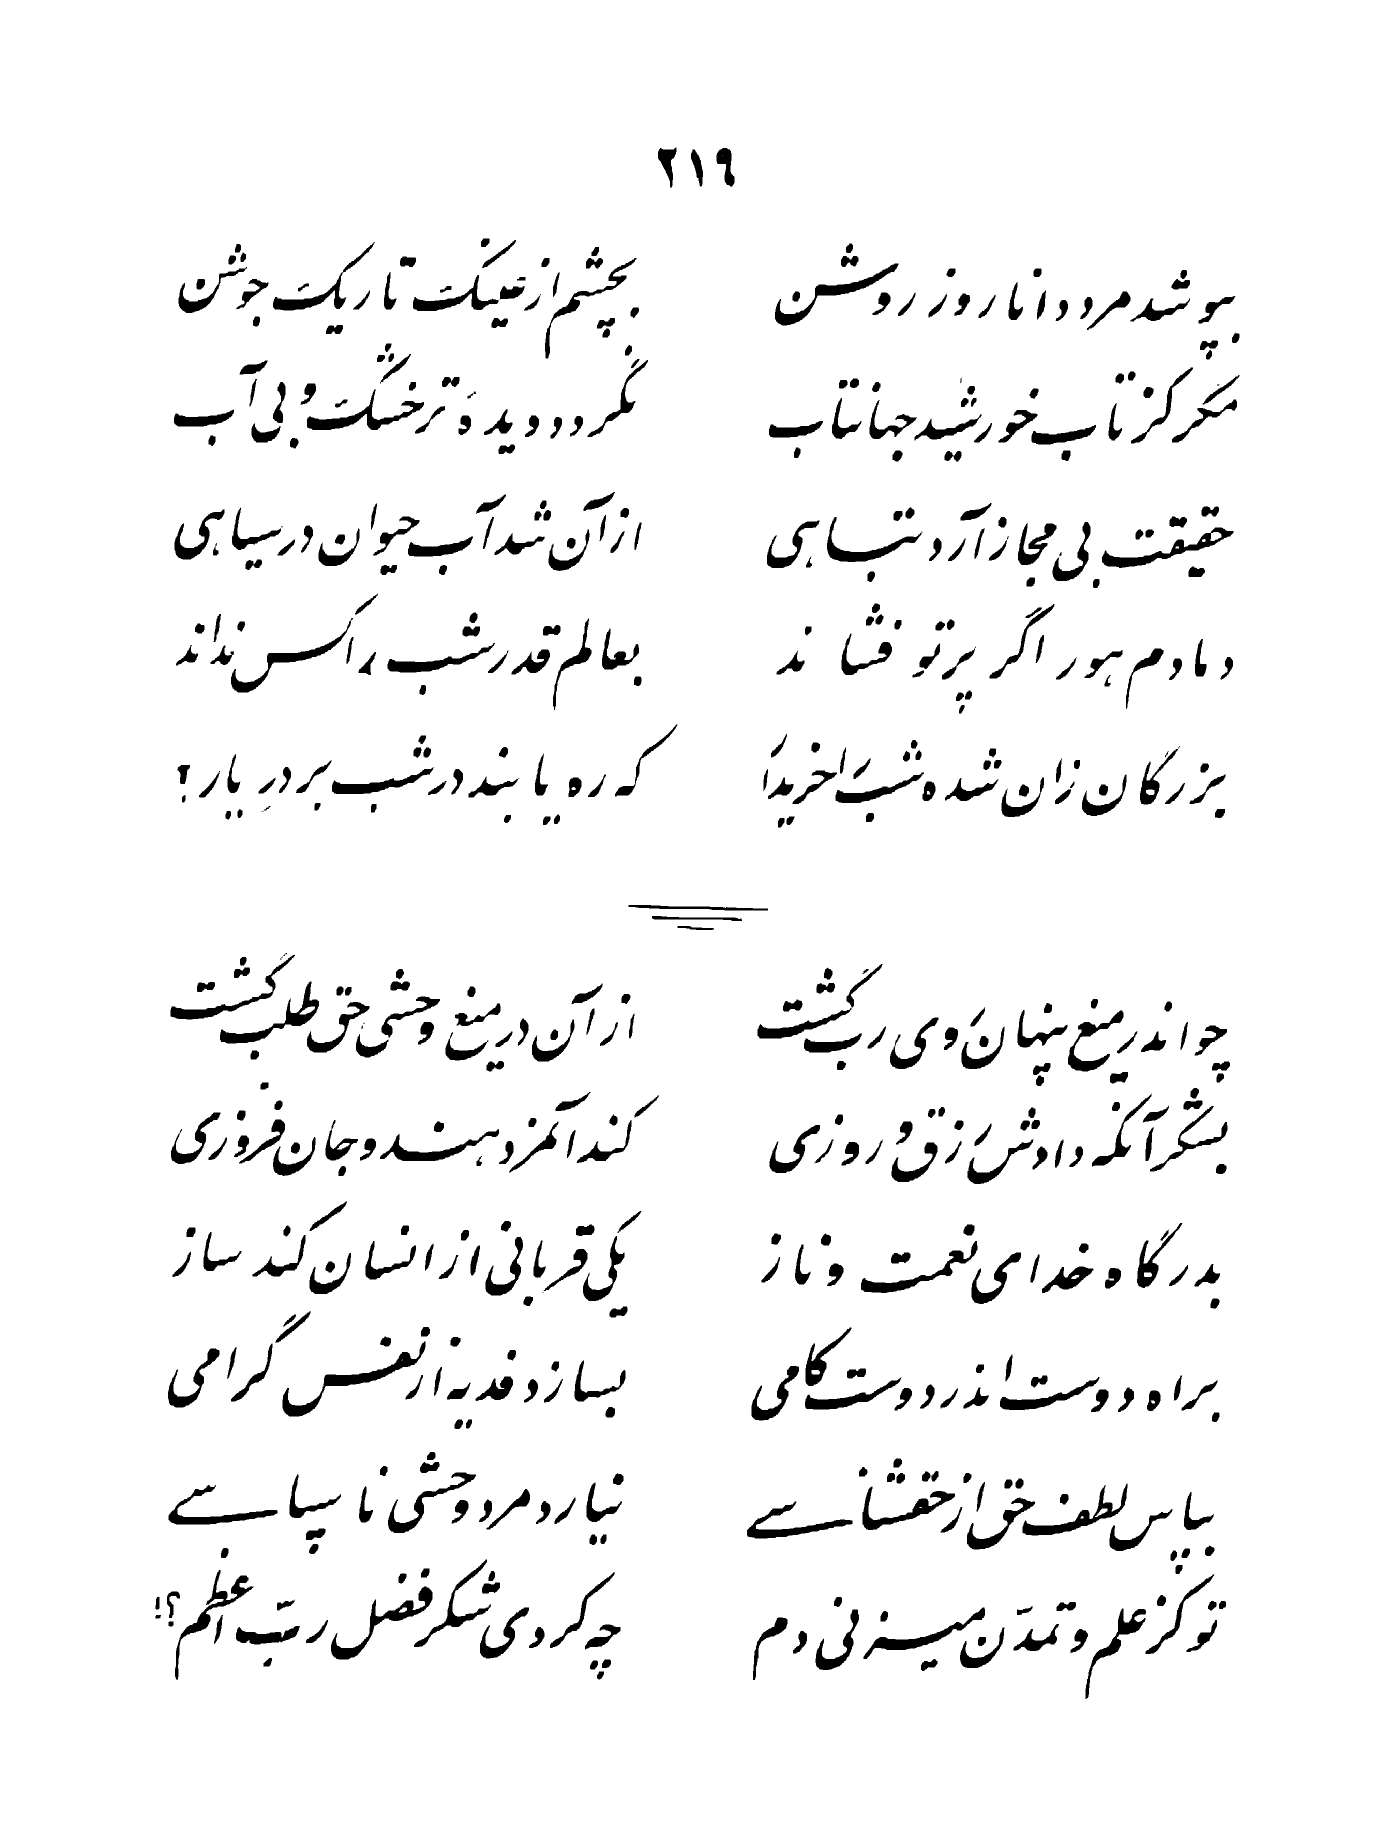 ۲۱۹
بپوشد مرد دانا روز روشن بچشم از عینک تاریک جوشن
مگر کز تاب خورشید جهانتاب نگردد دیدهٔ تر خشک و بی آب
حقیقت بی مجاز آرد تباهی از آن شد آب حیوان در سیاهی
دمادم هور اگر پرتو فشاند بعالم قدر شب را کس نداند
بزرگان زان شده شب را خریدار که ره یابند در شب بر درِ یار؟
چو اندر میغ پنهان روی رب گشت از آن در میغ وحشی حق طلب گشت
بشکر آنکه دادش رزق و روزی کند آتمزد هند و جان فروزی
بدرگاه خدای نعمت و ناز یکی قربانی از انسان کند ساز
براه دوست اندر دوست کامی بسازد فدیه از نفس گرامی
بپاس لطف حق از حقشناسے نیارد مرد وحشی ناسپاسے
تو کز علم و تمدّن میزنی دم چه کردی شکر فضل ربّ اعظم؟!